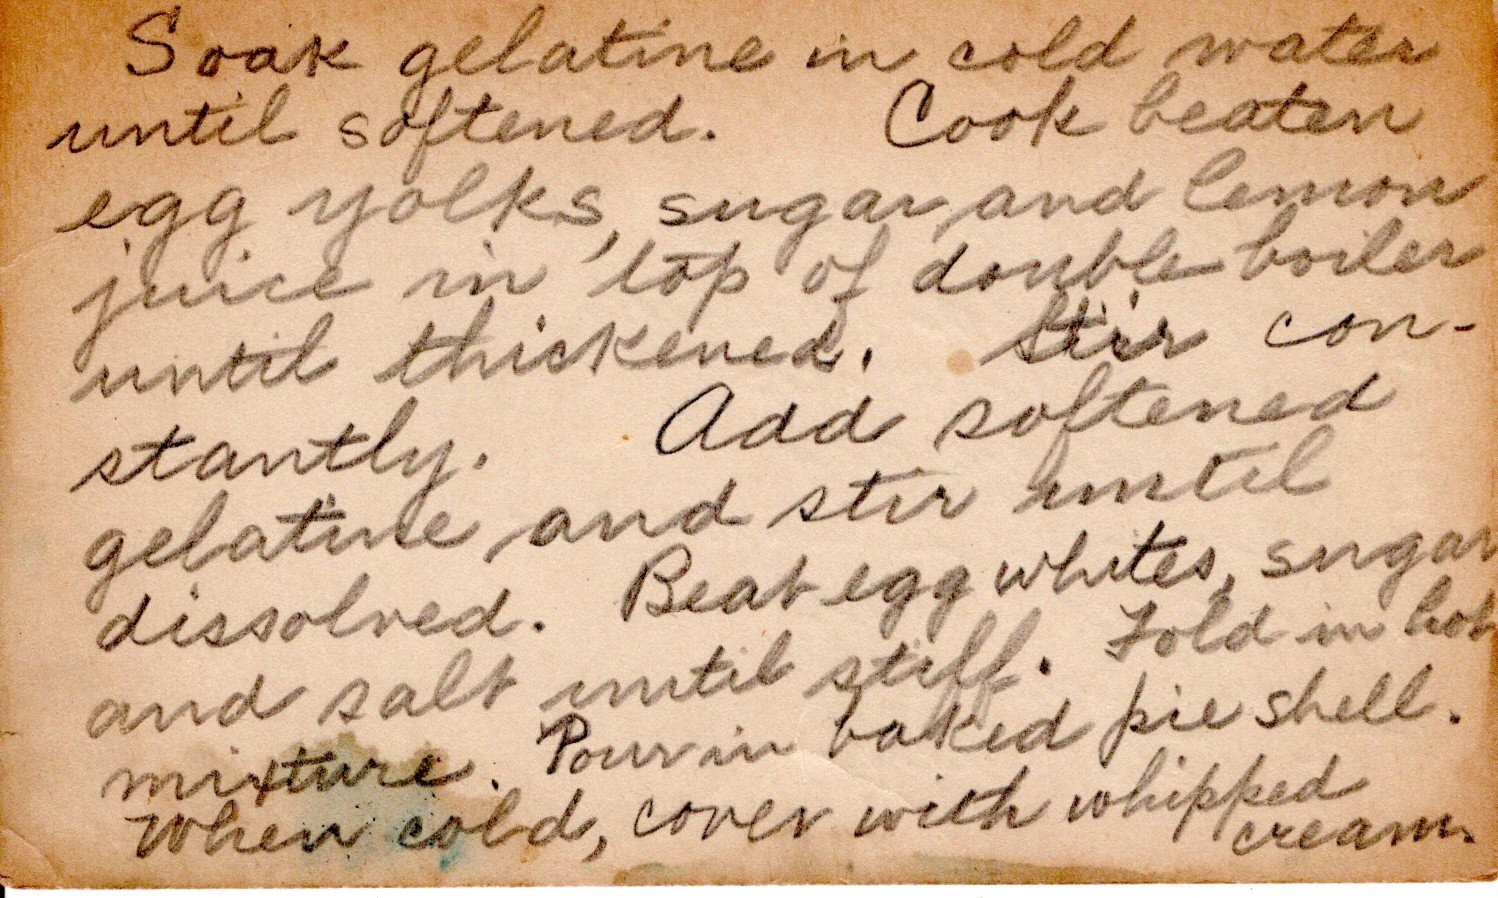 Soak gelatine in cold water
until softened. Cook beaten
egg yolks, sugar, and lemon
juice in top of double boiler
until thickened. Stir con-
stantly. Add softened
gelatine and stir until
dissolved. Beat egg whites, sugar
and salt until stiff. Fold in hot
mixture. Pour in baked pie shell.
When cold, cover with whipped
cream.